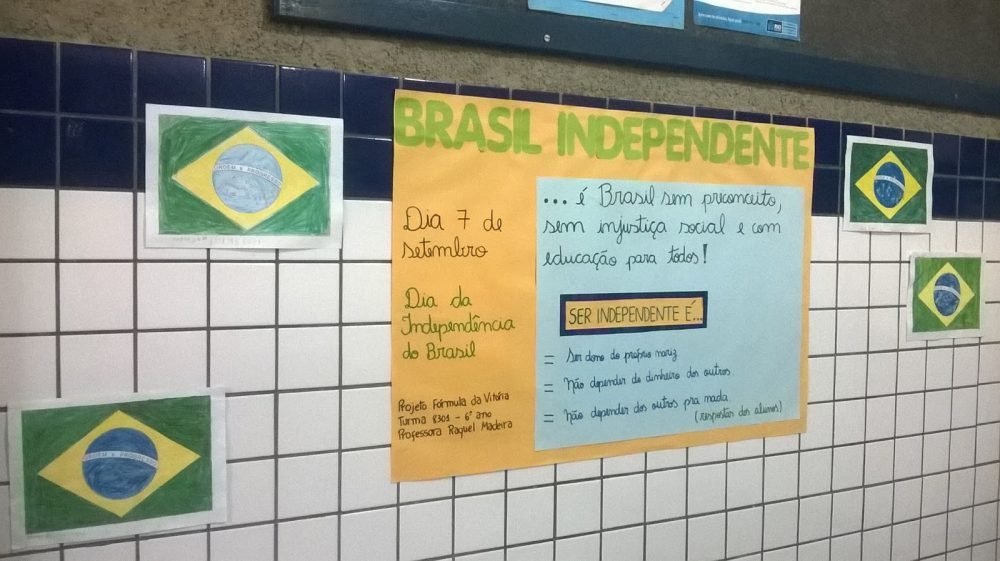 BRASIL INDEPENDENTE
Dia 7 de
setembro
Dia da
Independência
do Brasil
Projeto Fórmula da Vitória
Turma 8301 - 6º ano
Professora Raquel Madeira
... é Brasil sem preconceito,
sem injustiça social e com
educação para todos!
SER INDEPENDENTE É...
= Ser dono do próprio nariz
= Não depender de dinheiro dos outros
= Não depender dos outros pra nada.
(respostas dos alunos)
ORDEM E PROGRESSO
ORDEM E PROGRESSO